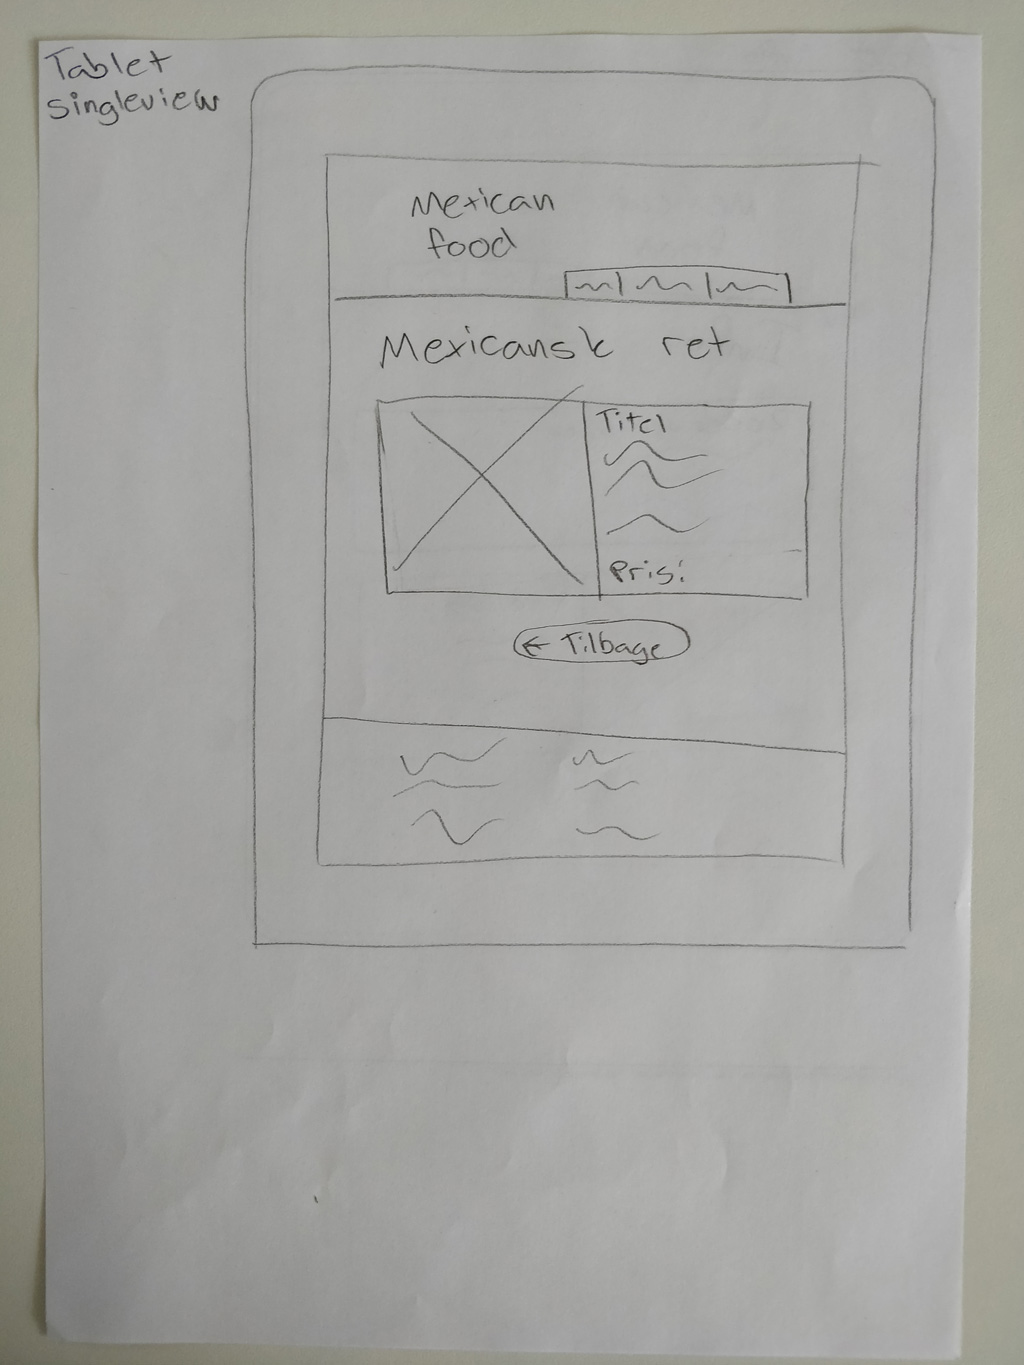 Tablet
singleview
Mexican
food
Mexicansk ret
Titel
Pris:
← Tilbage